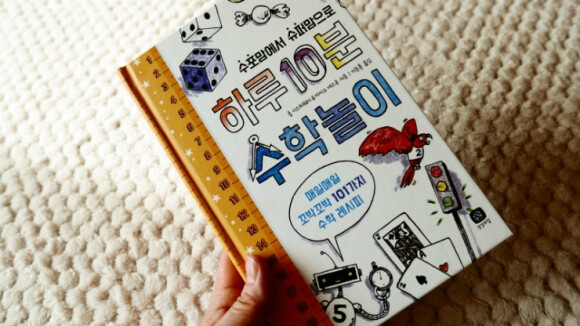 수포맘에서 슈퍼맘으로
하루 10분
수학놀이
매일매일
꼬박꼬박 101가지
수학 레시피
1
2
3
4
5
6
7
8
9
10
11
12
13
14
2
A
A
5